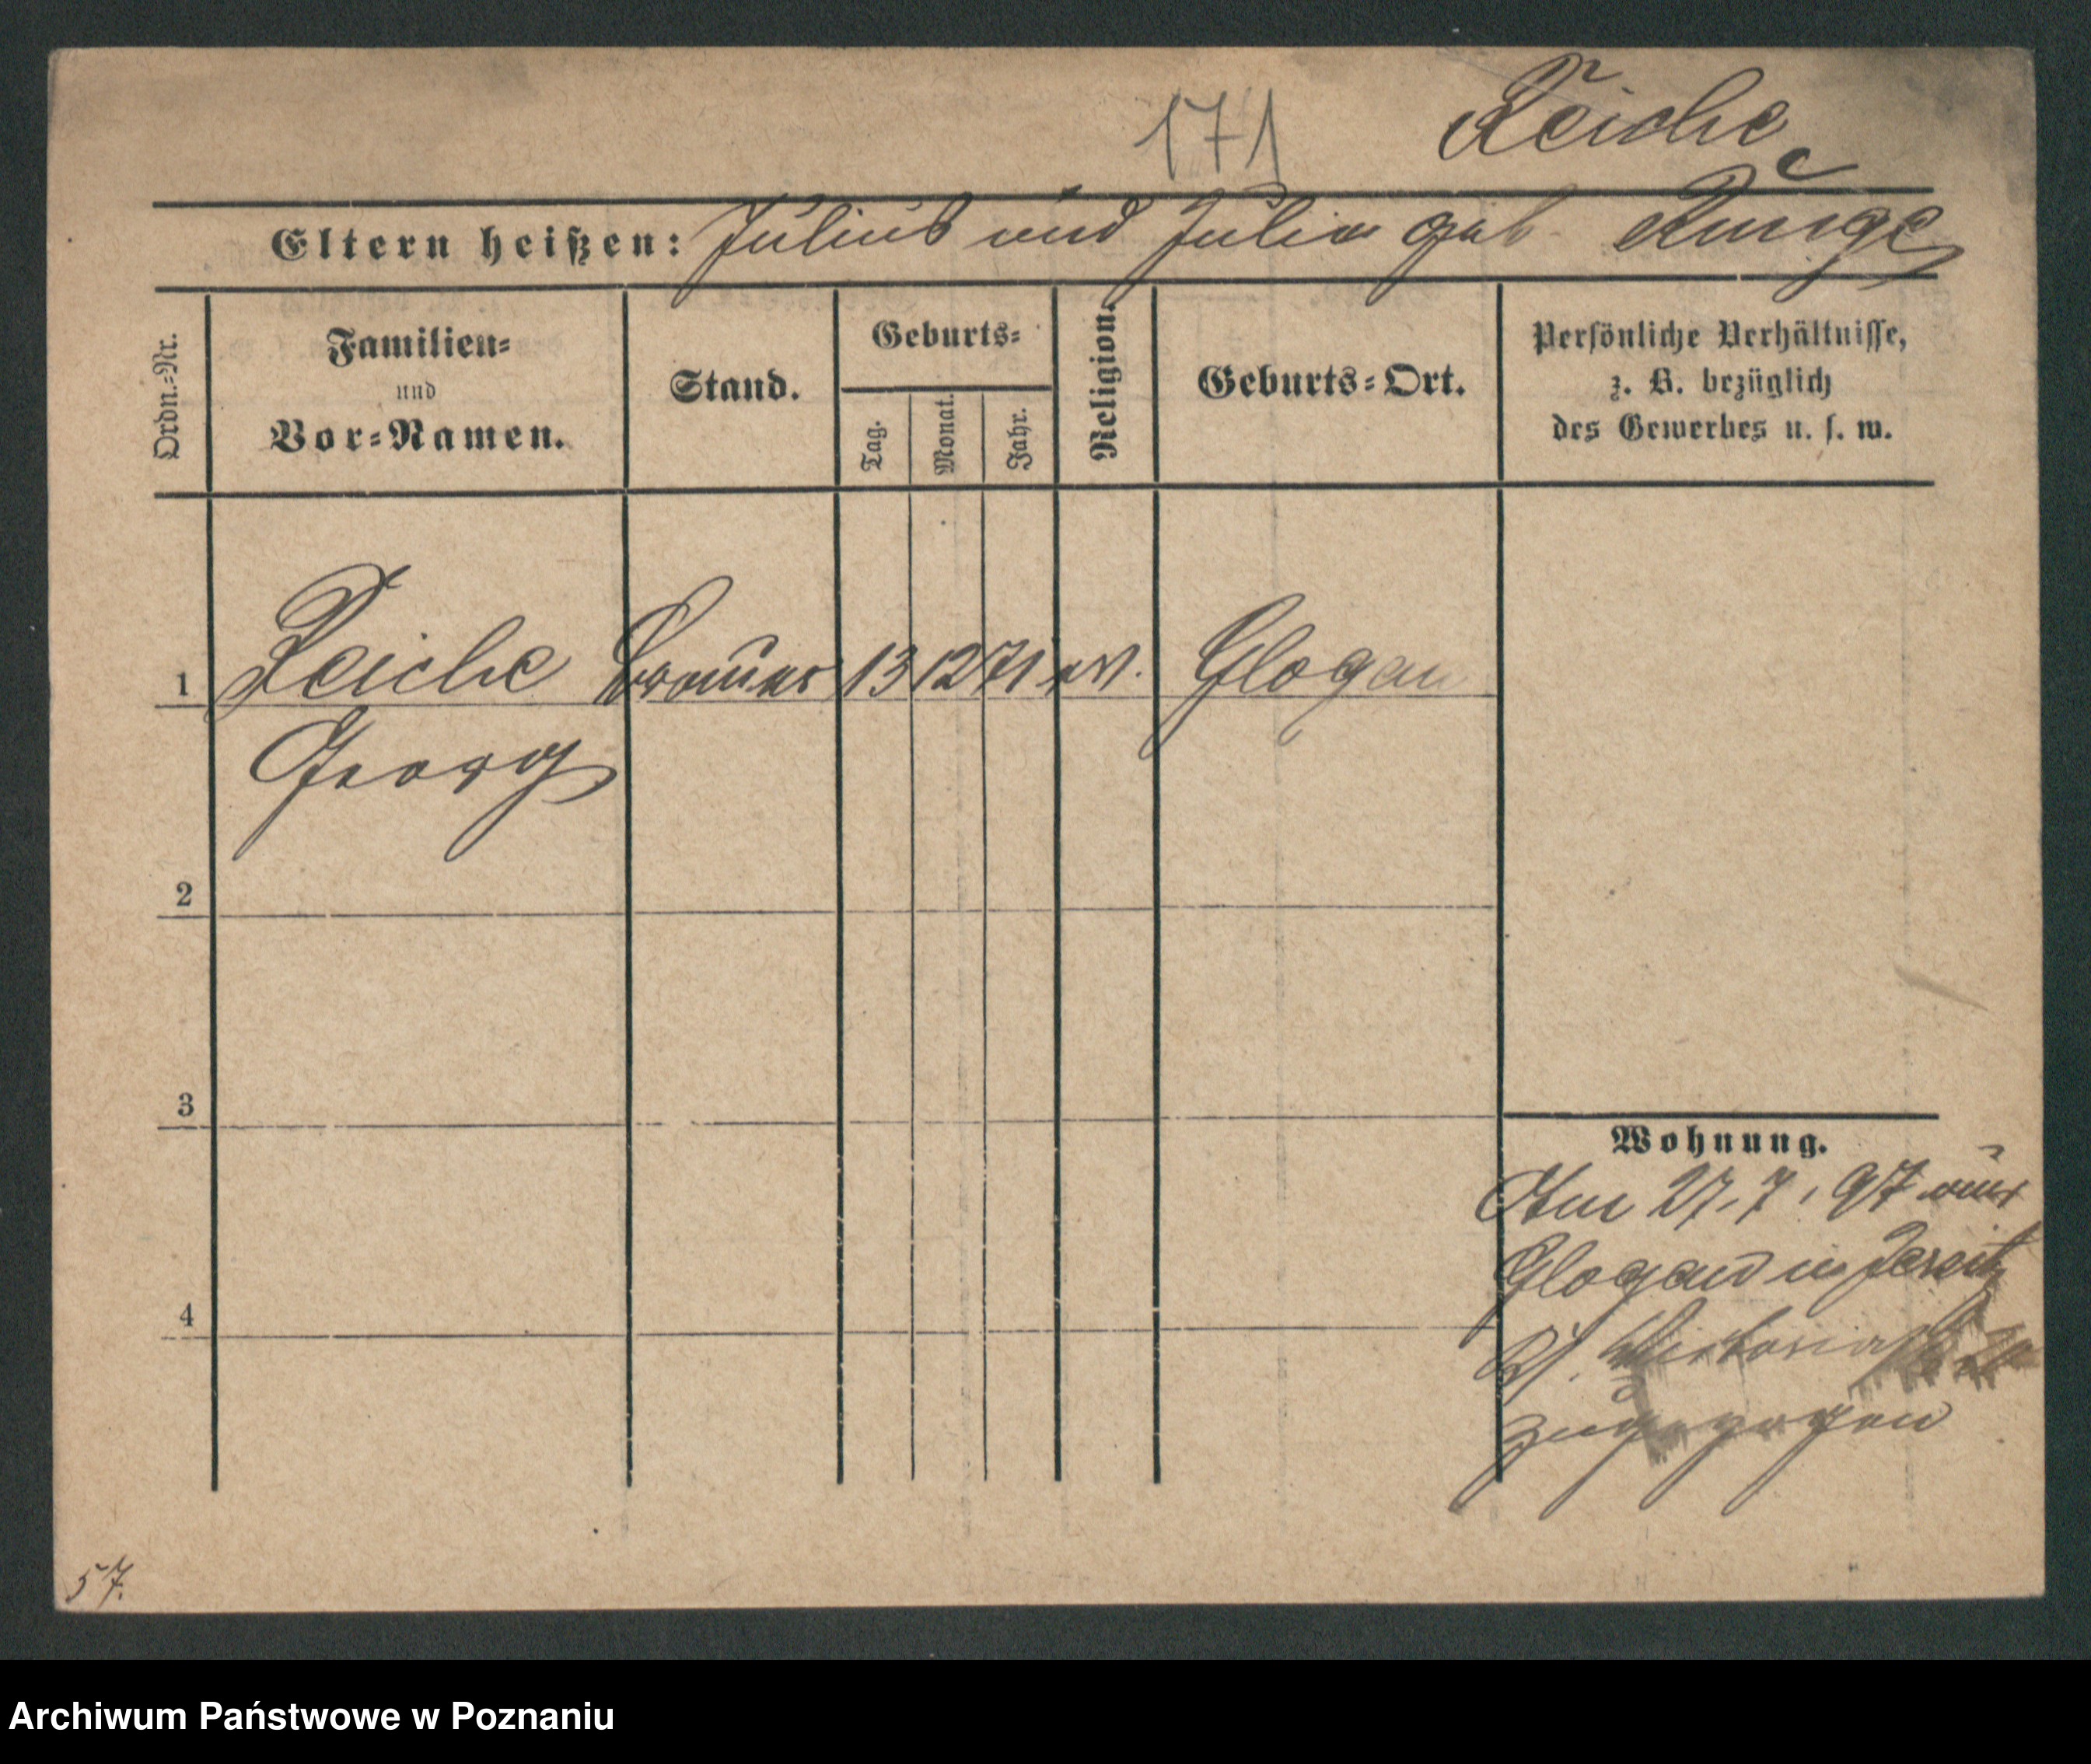 171
Reiche
Eltern heißen: Julius und Julie geb. Runge
Ordn.=Nr.
Familien=
und
Vor=Namen.
Stand.
Geburts=
Tag.
Monat.
Jahr.
Religion.
Geburts=Ort.
Persönliche Verhältnisse,
z. B. bezüglich
des Gewerbes u. s. w.
1 Reiche Brauer 13 12 71 ev. Glogau
Georg
2
3
4
Wohnung.
Am 27.7.97 aus
Glogau in Jersitz
Victoriastr.
zugezogen
57.
Archiwum Państwowe w Poznaniu